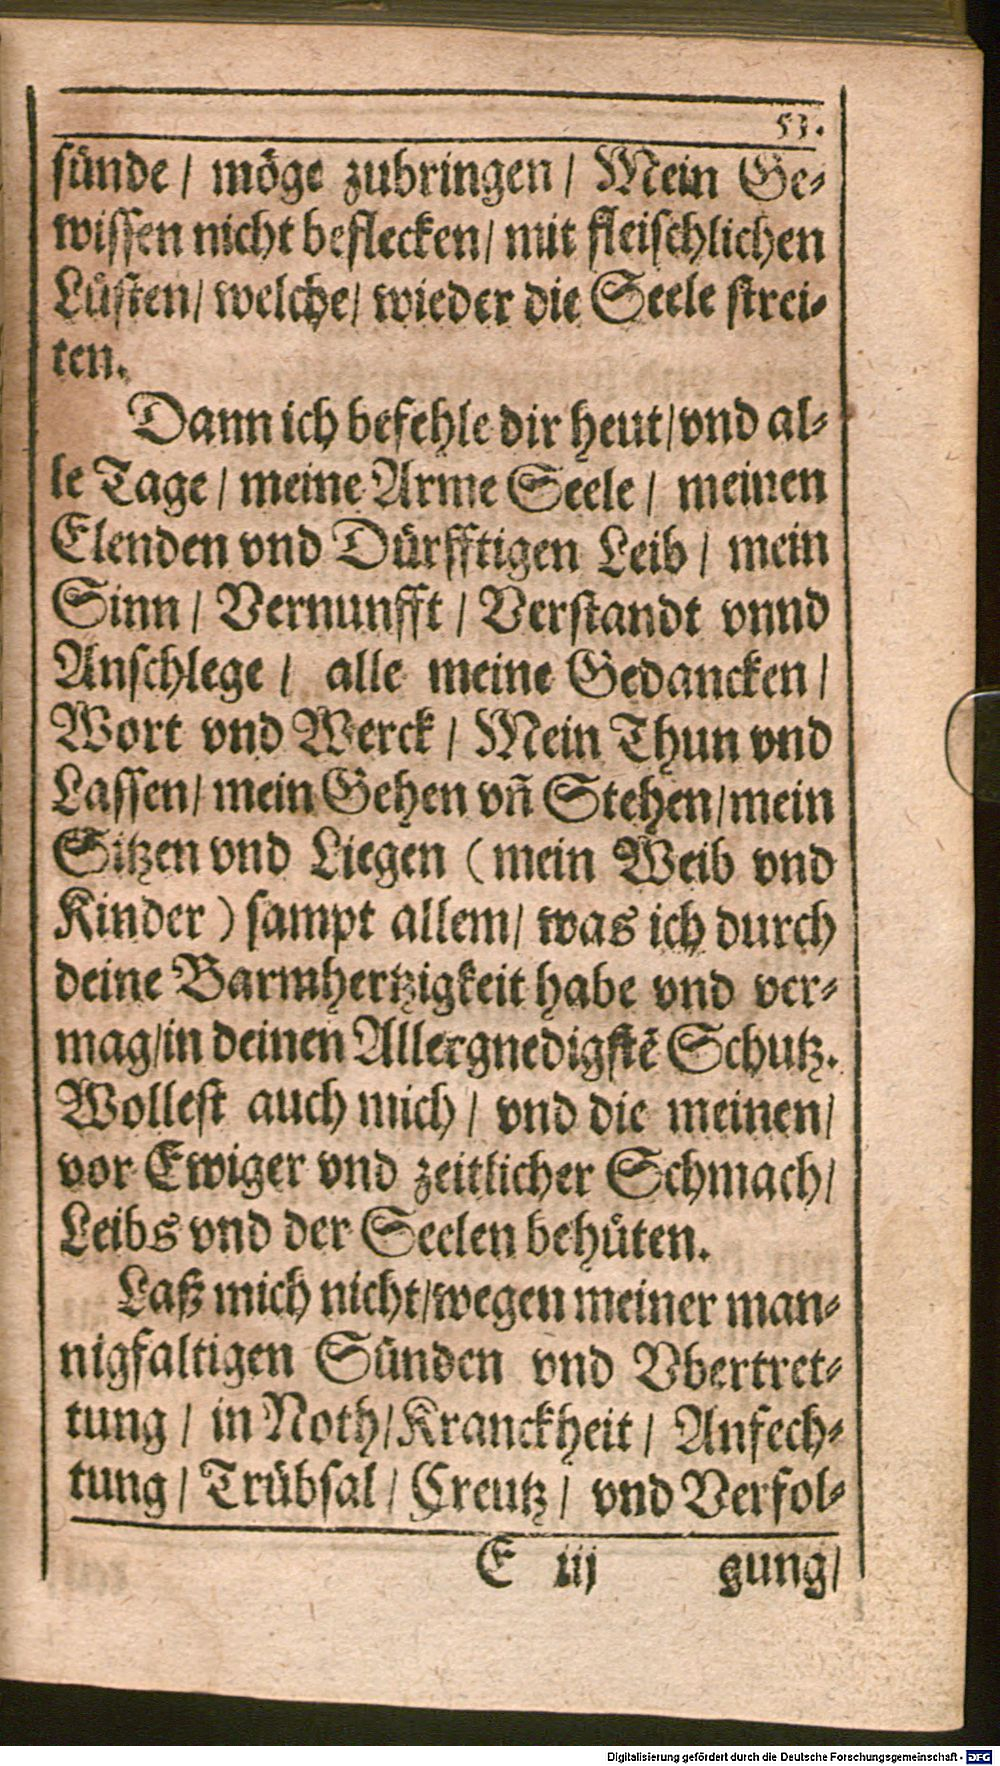 53.
sünde / möge zubringen / Mein Ge-
wissen nicht beflecken / mit fleischlichen
Lüsten / welche / wieder die Seele strei-
ten.
Dann ich befehle dir heut / vnd al-
le Tage / meine Arme Seele / meinen
Elenden vnd Dürfftigen Leib / mein
Sinn / Vernunfft / Verstandt vnnd
Anschlege / alle meine Gedancken /
Wort vnd Werck / Mein Thun vnd
Lassen / mein Gehen vñ Stehen / mein
Sitzen vnd Liegen (mein Weib vnd
Kinder) sampt allem / was ich durch
deine Barmhertzigkeit habe vnd ver-
mag / in deinen Allergnedigstẽ Schutz.
Wollest auch mich / vnd die meinen /
vor Ewiger vnd zeitlicher Schmach /
Leibs vnd der Seelen behüten.
Laß mich nicht / wegen meiner man-
nigfaltigen Sünden vnd Vbertret-
tung / in Noth / Kranckheit / Anfech-
tung / Trübsal / Creutz / vnd Verfol-
E iij gung /
Digitalisierung gefördert durch die Deutsche Forschungsgemeinschaft - DFG